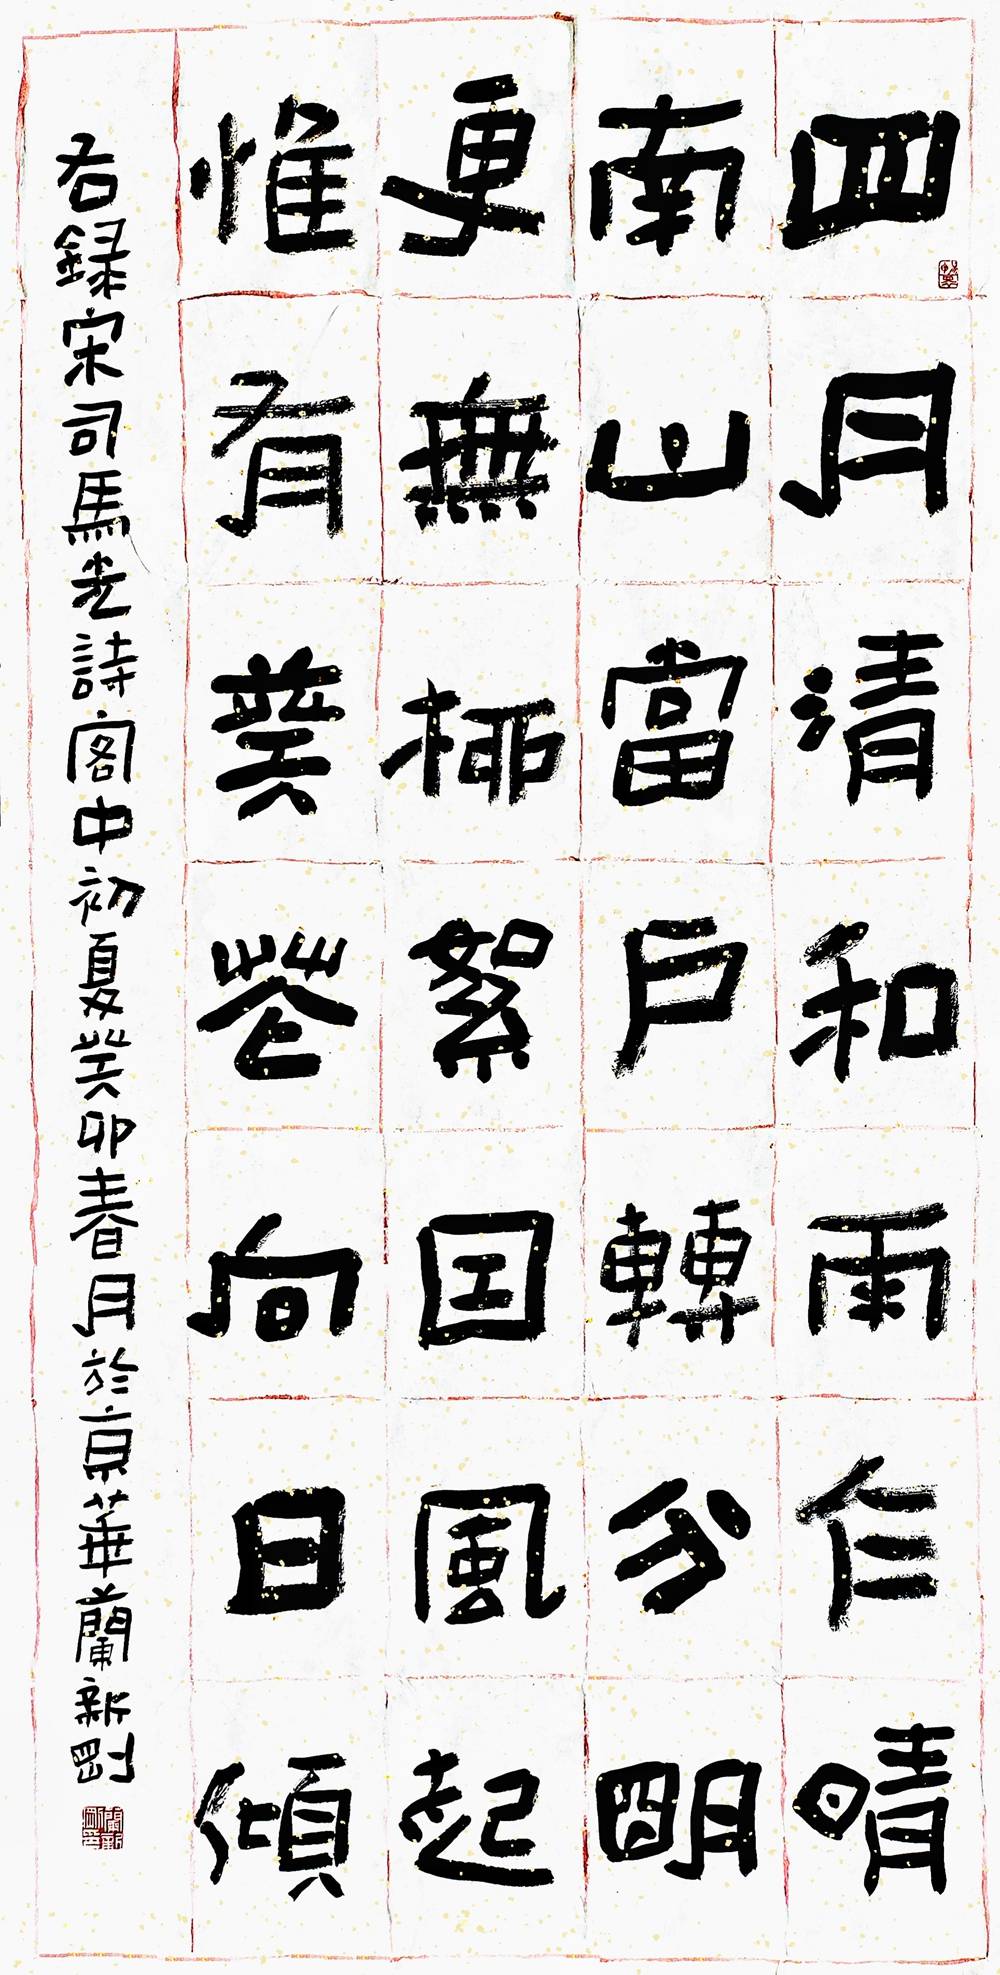 四月清和雨乍晴
南山當戶轉分明
更無柳絮因風起
惟有葵花向日傾
右録宋司馬光詩客中初夏癸卯春月於京華蘭新剛
蘭新剛印